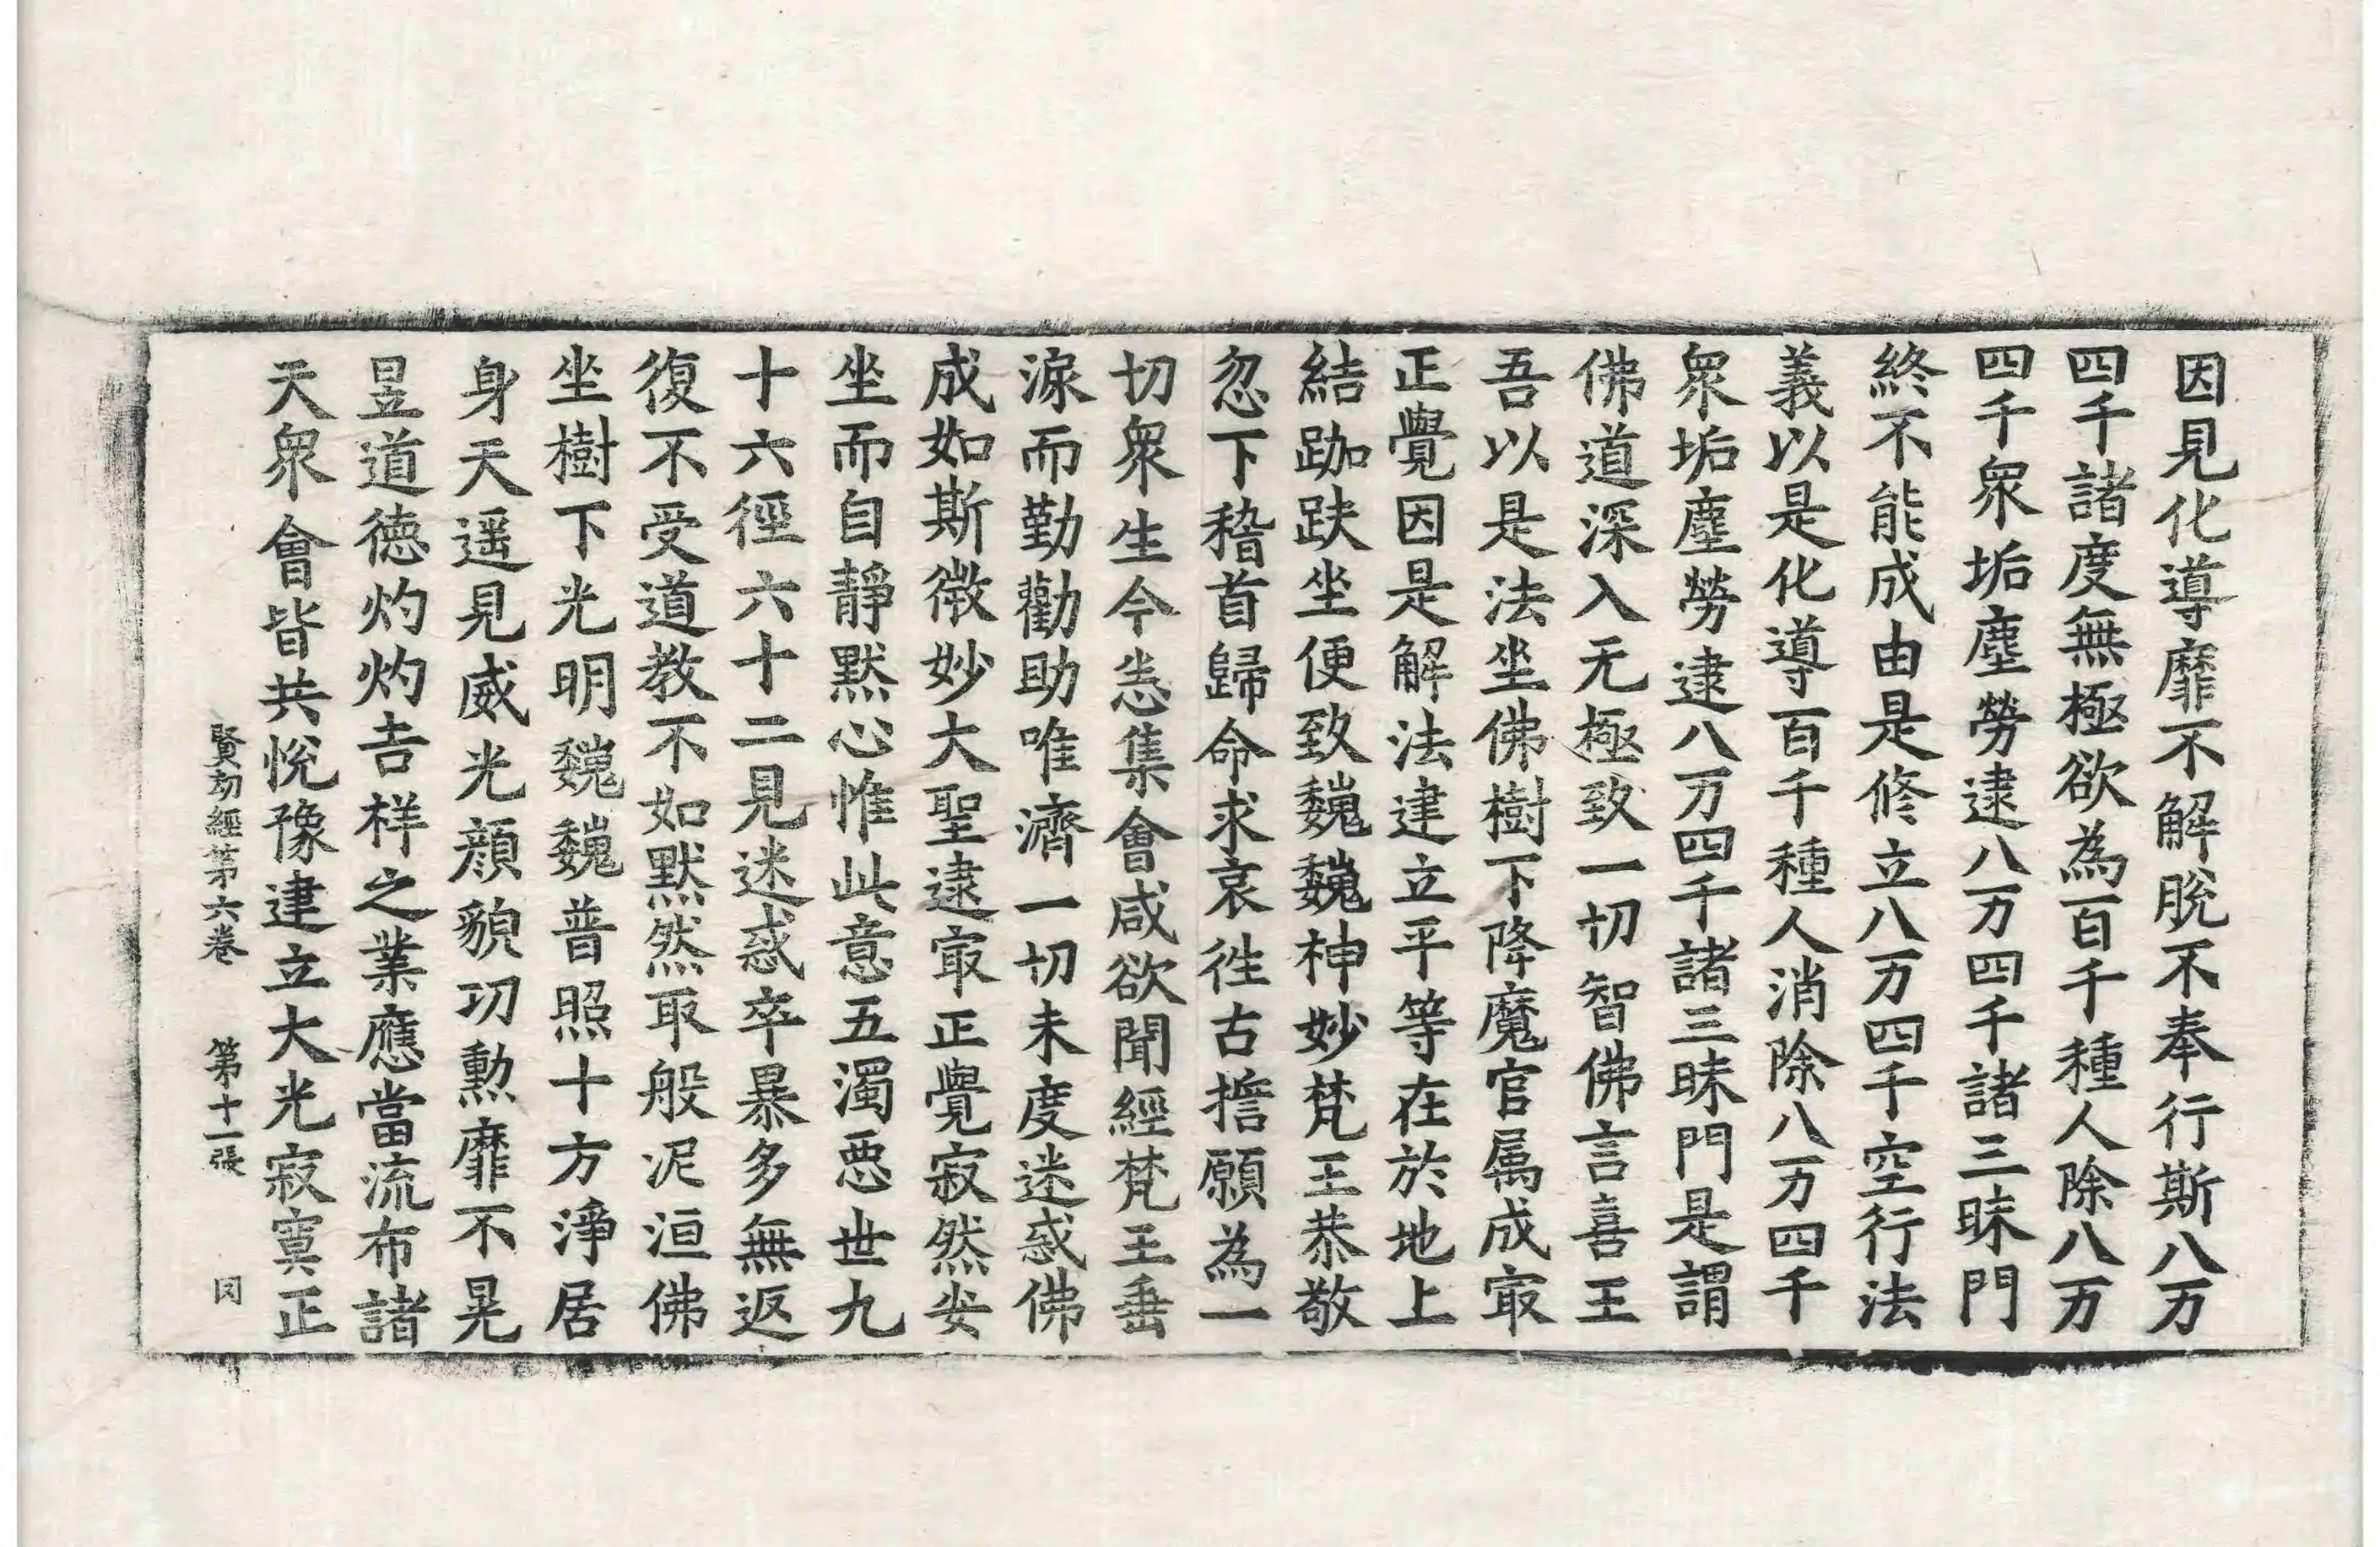 因見化導靡不解脫不奉行斯八万
四千諸度無極欲為百千種人除八万
四千眾垢塵勞逮八万四千諸三昧門
終不能成由是修立八万四千空行法
義以是化導百千種人消除八万四千
眾垢塵勞逮八万四千諸三昧門是謂
佛道深入无極致一切智佛言喜王
吾以是法坐佛樹下降魔官属成㝡
正覺因是解法建立平等在於地上
結跏趺坐便致巍巍神妙梵王恭敬
忽下稽首歸命求哀往古擔願為一
切眾生今恙集會咸欲聞經梵王垂
淚而勤勸助唯濟一切未度迷惑佛
成如斯微妙大聖逮㝡正覺寂然安
坐而自靜默心惟此意五濁惡世九
十六徑六十二見迷惑卒暴多無返
復不受道教不如默然取般泥洹佛
坐樹下光明巍巍普照十方淨居
身天遥見威光顔貌功勲靡不晃
昱道德灼灼吉祥之業應當流布諸
天眾會皆共悅豫建立大光寂寞正
賢劫經第六卷 第十一張